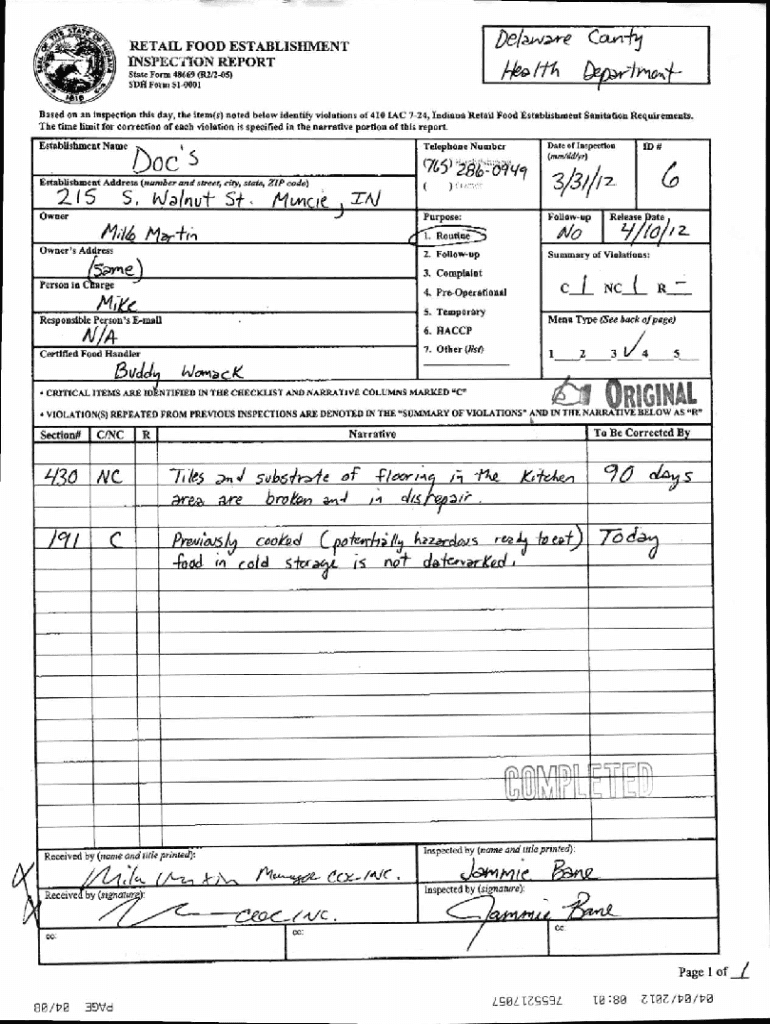 Delaware County
Health Department
RETAIL FOOD ESTABLISHMENT
INSPECTION REPORT
State Form 48669 (R2/2-05)
SDH Form 51-0001
Based on an inspection this day, the item(s) noted below identify violations of 410 IAC 7-24, Indiana Retail Food Establishment Sanitation Requirements.
The time limit for correction of each violation is specified in the narrative portion of this report.
Establishment Name
Doc's
Telephone Number
(765) 286-0949
( )
Date of Inspection
(mm/dd/yr)
3/31/12
ID #
6
Establishment Address (number and street, city, state, ZIP code)
215 S. Walnut St. Muncie, IN
Owner
Mike Martin
Purpose:
1. Routine
2. Follow-up
3. Complaint
4. Pre-Operational
5. Temporary
6. HACCP
7. Other (list)
Follow-up
No
Release Date
4/10/12
Owner's Address
(same)
Summary of Violations:
C 1 NC 1 R -
Person in Charge
Mike
Responsible Person's E-mail
N/A
Menu Type (See back of page)
1 2 3 ✓ 4 5
Certified Food Handler
Buddy Womack
• CRITICAL ITEMS ARE IDENTIFIED IN THE CHECKLIST AND NARRATIVE COLUMNS MARKED "C"
ORIGINAL
• VIOLATION(S) REPEATED FROM PREVIOUS INSPECTIONS ARE DENOTED IN THE "SUMMARY OF VIOLATIONS" AND IN THE NARRATIVE BELOW AS "R"
Section# C/NC R Narrative To Be Corrected By
430 NC Tiles and substrate of flooring in the Kitchen 90 days
area are broken and in disrepair.
191 C Previously cooked (potentially hazardous ready to eat) Today
food in cold storage is not datemarked.
COMPLETED
Received by (name and title printed):
Mike Martin Manager
Inspected by (name and title printed):
Jammie Bane
Received by (signature):
INC.
Inspected by (signature):
Jammie Bane
cc:
cc:
cc
Page 1 of 1
PAGE 04/08
7655217057
04/04/2012 08:01